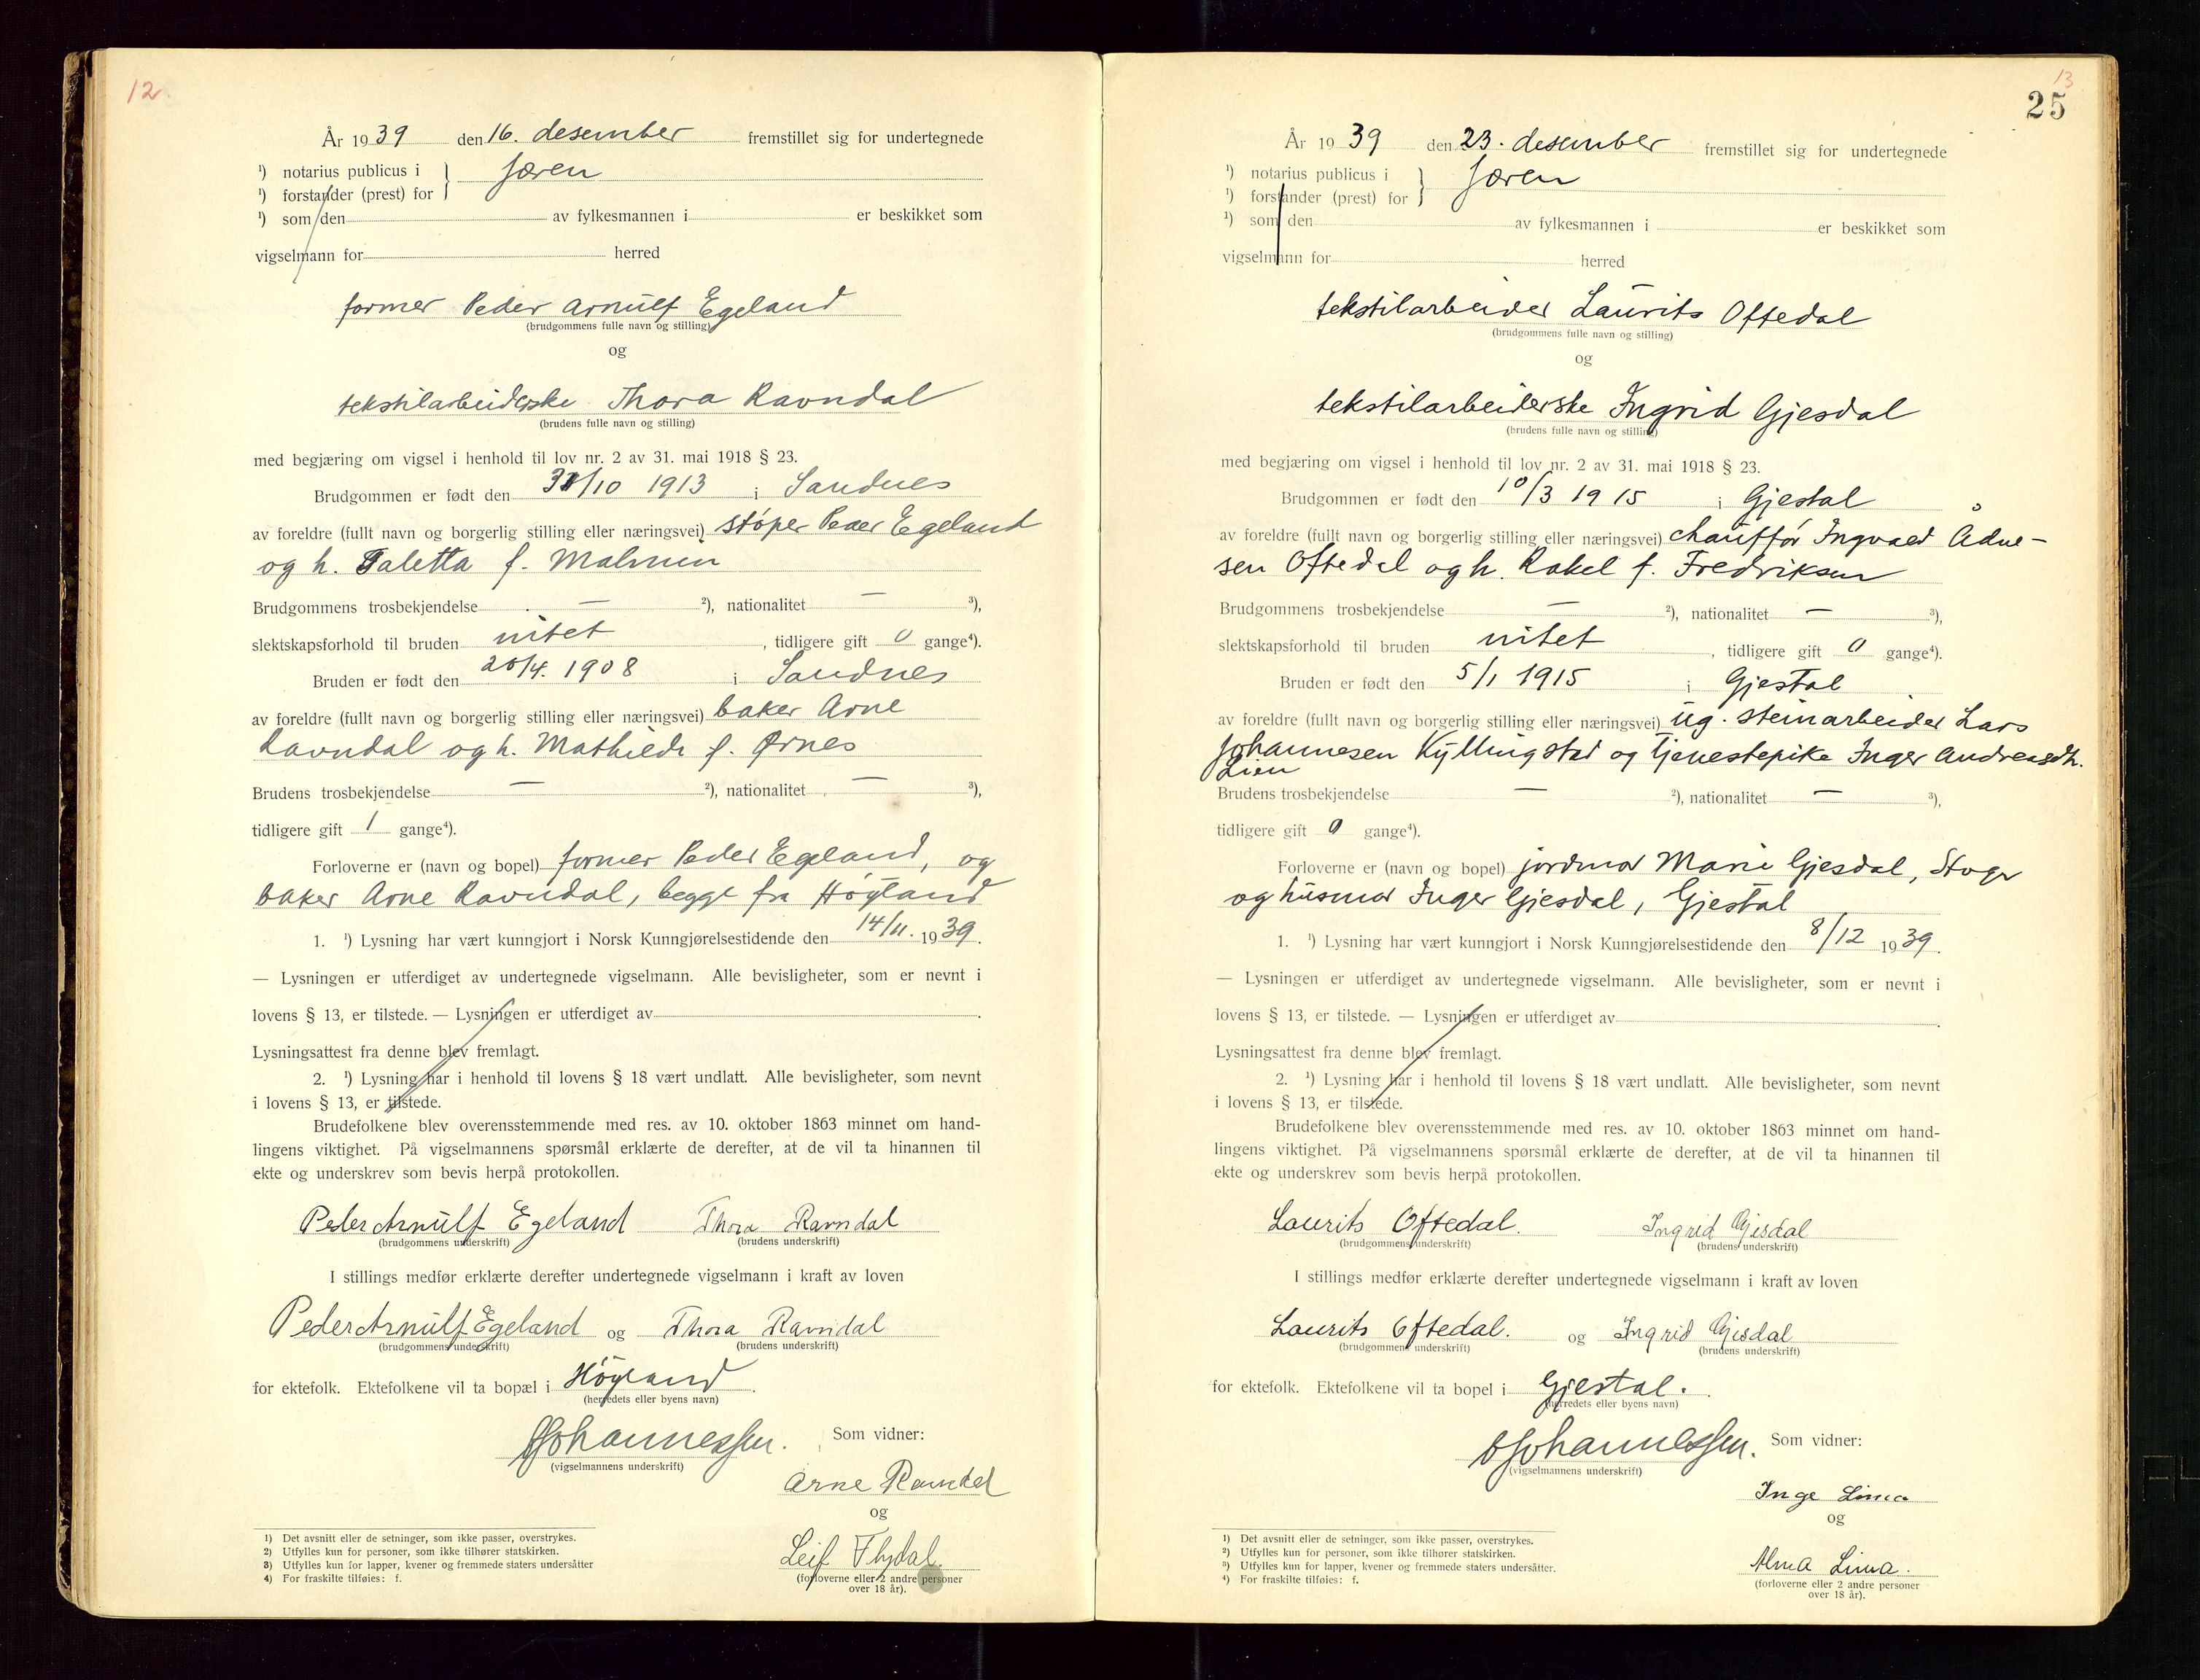 12
År 1939 den 16. desember fremstillet sig for undertegnede
¹) notarius publicus i } Jæren
¹) forstander (prest) for
¹) som den av fylkesmannen i er beskikket som
vigselmann for herred
former Peder Arnulf Egeland
(brudgommens fulle navn og stilling)
og
tekstilarbeiderske Thora Ravndal
(brudens fulle navn og stilling)
med begjæring om vigsel i henhold til lov nr. 2 av 31. mai 1918 § 23.
Brudgommen er født den /10 1913 i Sandnes
av foreldre (fullt navn og borgerlig stilling eller næringsvei) støper Peder Egeland
og h. Taletta f. Malmin
Brudgommens trosbekjendelse — ²), nationalitet — ³),
slektskapsforhold til bruden intet, tidligere gift 0 gange⁴).
Bruden er født den 20/4. 1908 i Sandnes
av foreldre (fullt navn og borgerlig stilling eller næringsvei) baker Arne
Ravndal og h. Mathilde f. Ørnes
Brudens trosbekjendelse — ²), nationalitet — ³),
tidligere gift 1 gange⁴).
Forloverne er (navn og bopel) former Peder Egeland, og
baker Arne Ravndal, begge fra Høyland
1. ¹) Lysning har vært kunngjort i Norsk Kunngjørelsestidende den 14/11. 1939.
— Lysningen er utferdiget av undertegnede vigselmann. Alle bevisligheter, som er nevnt i
lovens § 13, er tilstede. — Lysningen er utferdiget av .
Lysningsattest fra denne blev fremlagt.
2. ¹) Lysning har i henhold til lovens § 18 vært undlatt. Alle bevisligheter, som nevnt
i lovens § 13, er tilstede.
Brudefolkene blev overensstemmende med res. av 10. oktober 1863 minnet om hand-
lingens viktighet. På vigselmannens spørsmål erklærte de derefter, at de vil ta hinannen til
ekte og underskrev som bevis herpå protokollen.
Peder Arnulf Egeland Thora Ravndal
(brudgommens underskrift) (brudens underskrift)
I stillings medfør erklærte derefter undertegnede vigselmann i kraft av loven
Peder Arnulf Egeland og Thora Ravndal
(brudgommens underskrift) (brudens underskrift)
for ektefolk. Ektefolkene vil ta bopæl i Høyland.
(herredets eller byens navn)
Johannessen. Som vidner:
(vigselmannens underskrift)
Arne Ravndal
og
Leif
(forloverne eller 2 andre personer
over 18 år).
1) Det avsnitt eller de setninger, som ikke passer, overstrykes.
2) Utfylles kun for personer, som ikke tilhører statskirken.
3) Utfylles kun for lapper, kvener og fremmede staters undersåtter
4) For fraskilte tilføies: f.
13
25
År 1939 den 23. desember fremstillet sig for undertegnede
¹) notarius publicus i } Jæren
¹) forstander (prest) for
¹) som den av fylkesmannen i er beskikket som
vigselmann for herred
tekstilarbeider Laurits Oftedal
(brudgommens fulle navn og stilling)
og
tekstilarbeiderske Ingrid Gjesdal
(brudens fulle navn og stilling)
med begjæring om vigsel i henhold til lov nr. 2 av 31. mai 1918 § 23.
Brudgommen er født den 10/3 1915 i Gjestal
av foreldre (fullt navn og borgerlig stilling eller næringsvei) chauffør Ingvald Adne-
sen Oftedal og h. Rakel f. Fredriksen
Brudgommens trosbekjendelse — ²), nationalitet — ³),
slektskapsforhold til bruden intet, tidligere gift 0 gange⁴).
Bruden er født den 5/1 1915 i Gjestal
av foreldre (fullt navn og borgerlig stilling eller næringsvei) ug. steinarbeider Lars
Johannesen Kyllingstad og tjenestepike Inger Andreasdtr.
Lien
Brudens trosbekjendelse — ²), nationalitet — ³),
tidligere gift 0 gange⁴).
Forloverne er (navn og bopel) jordmor Marie Gjesdal,
og husmor Inger Gjesdal, Gjestal
1. ¹) Lysning har vært kunngjort i Norsk Kunngjørelsestidende den 8/12 1939.
— Lysningen er utferdiget av undertegnede vigselmann. Alle bevisligheter, som er nevnt i
lovens § 13, er tilstede. — Lysningen er utferdiget av .
Lysningsattest fra denne blev fremlagt.
2. ¹) Lysning har i henhold til lovens § 18 vært undlatt. Alle bevisligheter, som nevnt
i lovens § 13, er tilstede.
Brudefolkene blev overensstemmende med res. av 10. oktober 1863 minnet om hand-
lingens viktighet. På vigselmannens spørsmål erklærte de derefter, at de vil ta hinannen til
ekte og underskrev som bevis herpå protokollen.
Laurits Oftedal. Ingrid Gjesdal
(brudgommens underskrift) (brudens underskrift)
I stillings medfør erklærte derefter undertegnede vigselmann i kraft av loven
Laurits Oftedal. og Ingrid Gjesdal
(brudgommens underskrift) (brudens underskrift)
for ektefolk. Ektefolkene vil ta bopel i Gjestal.
(herredets eller byens navn)
Johannessen. Som vidner:
(vigselmannens underskrift)
Inge Lima
og
Alma Lima.
(forloverne eller 2 andre personer
over 18 år).
¹) Det avsnitt eller de setninger, som ikke passer, overstrykes.
²) Utfylles kun for personer, som ikke tilhører statskirken.
³) Utfylles kun for lapper, kvener og fremmede staters undersåtter.
⁴) For fraskilte tilføies: f.